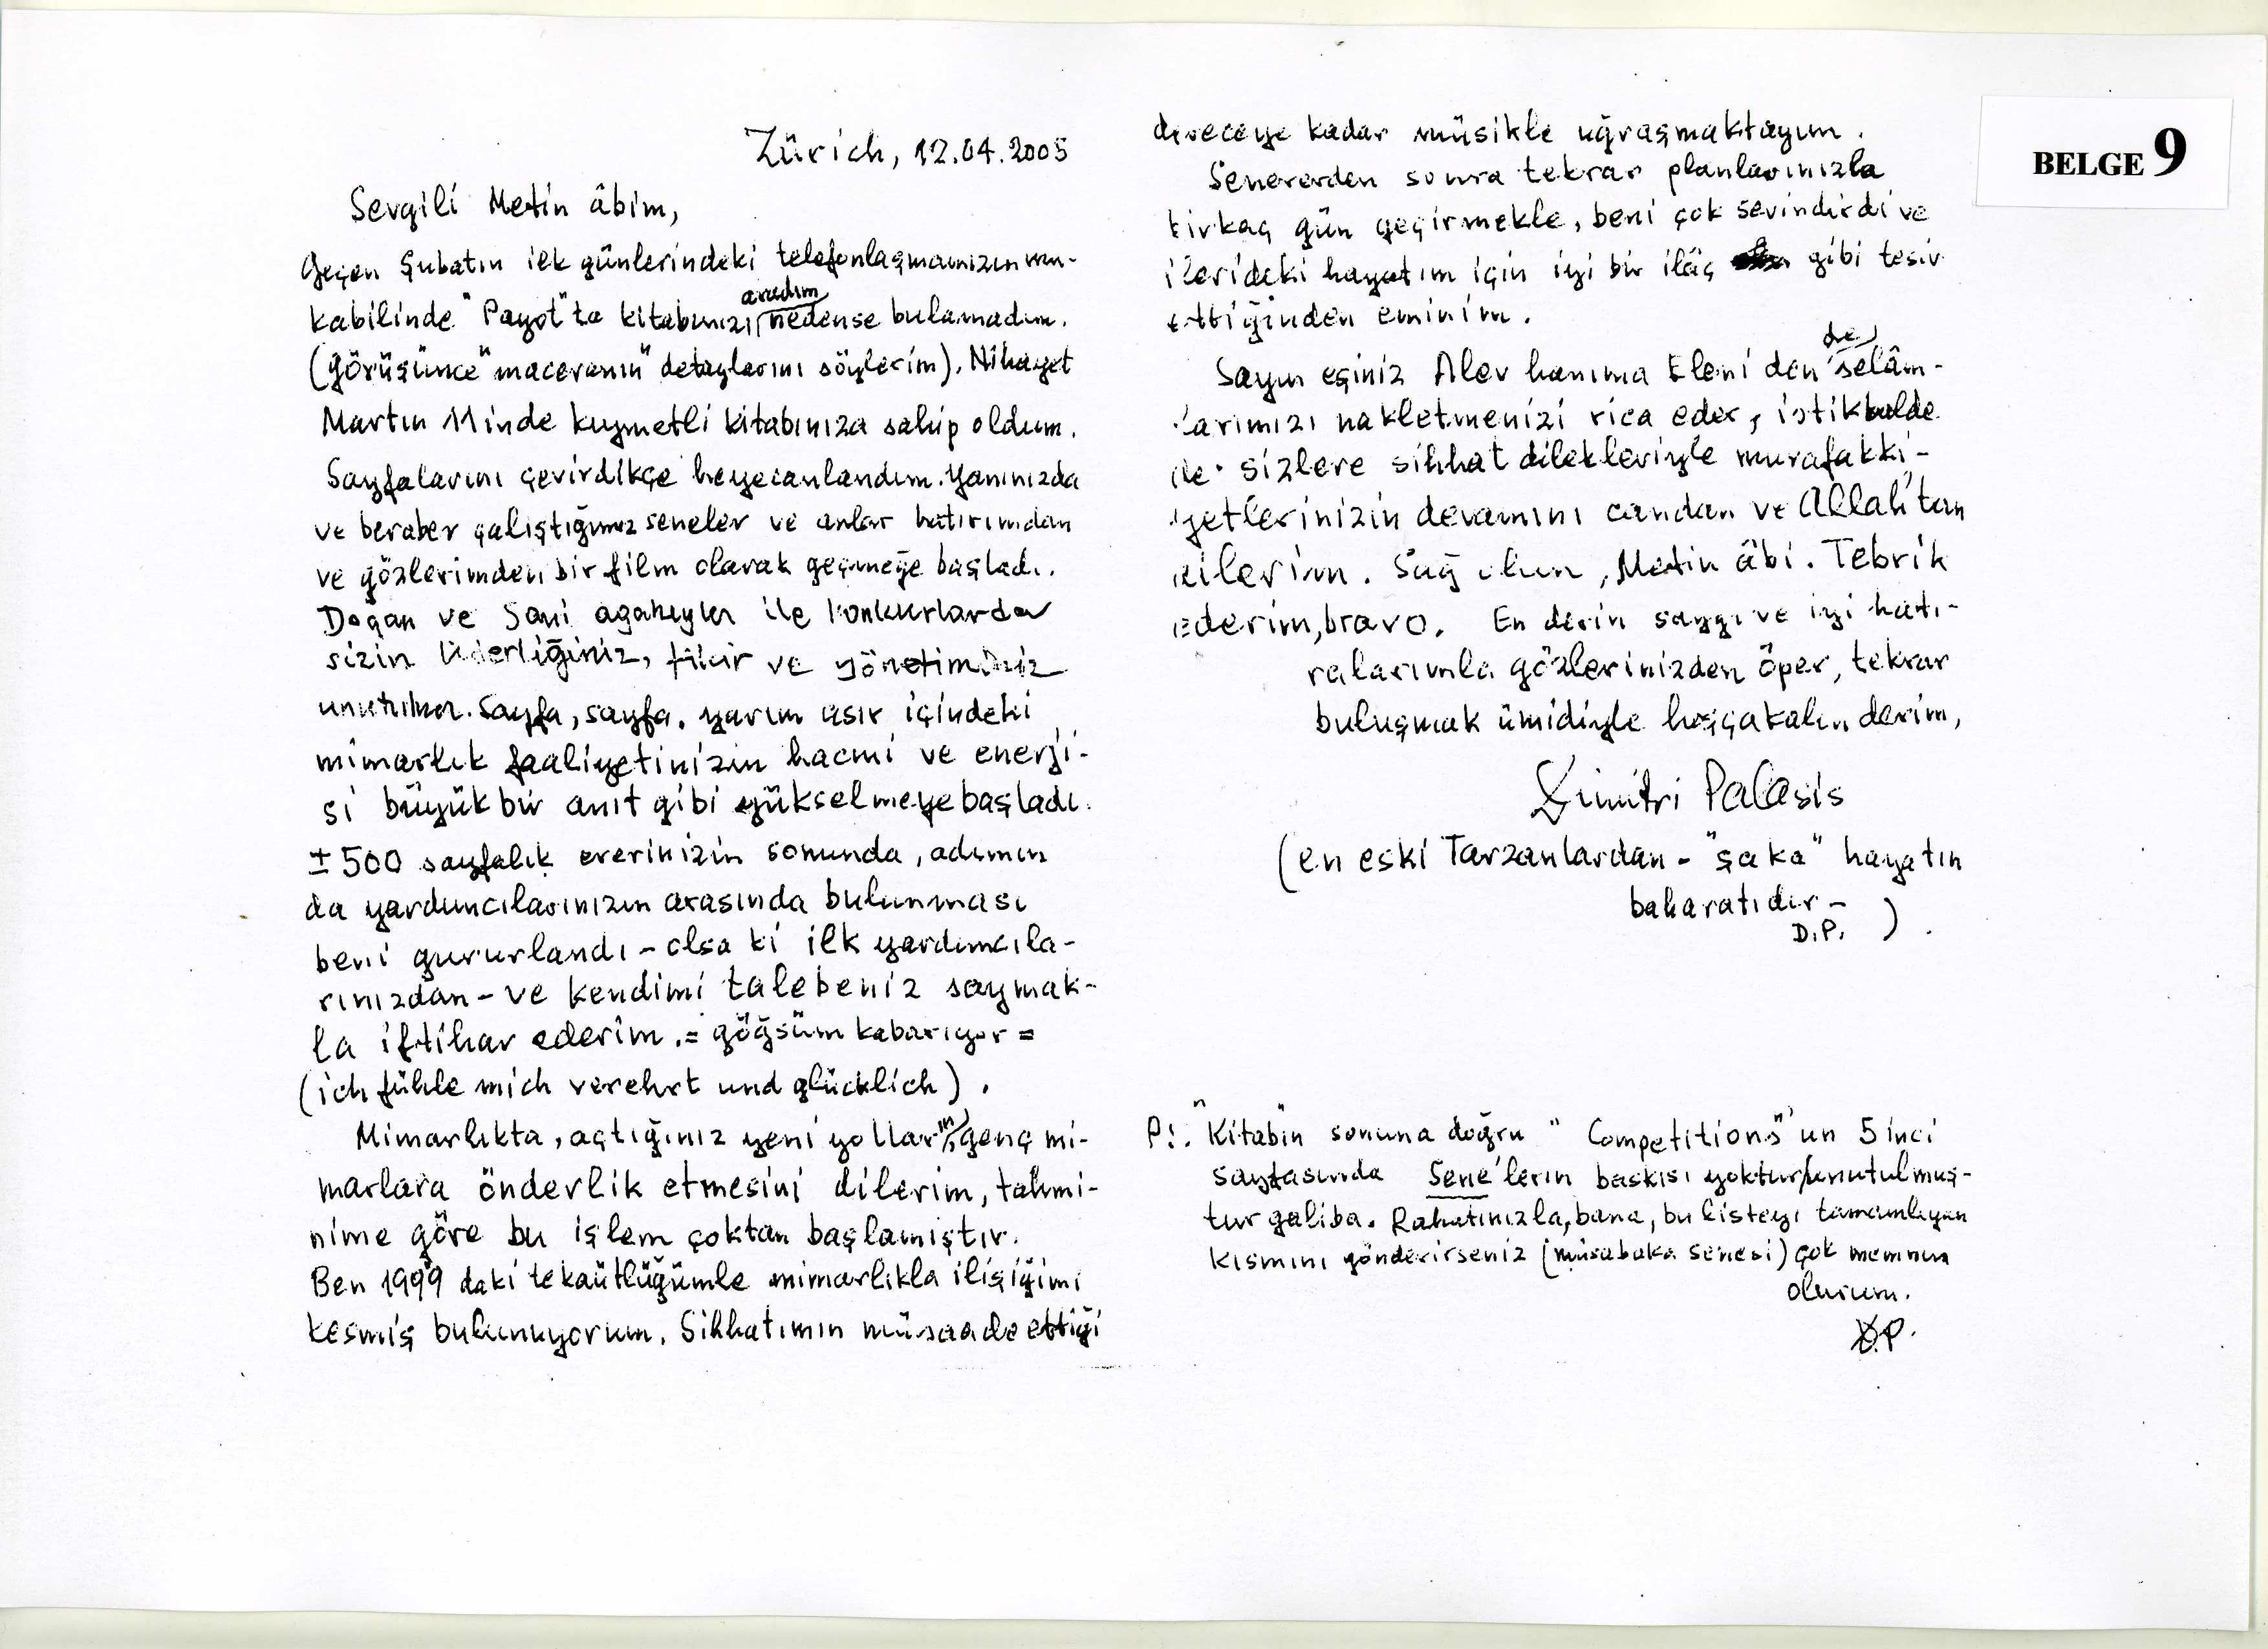 Zürich, 12.04.2005
Sevgili Metin âbim,
Geçen Şubatın ilk günlerindeki telefonlaşmamızın mu-
kabilinde "Payot"ta kitabınızı aradım nedense bulamadım.
(görüşünce "maceranın" detaylarını söylerim). Nihayet
Martın 11inde kıymetli kitabınıza sahip oldum.
Sayfalarını çevirdikçe heyecanlandım. Yanınızda
ve beraber çaliştiğımız seneler ve anlar hatırımdan
ve gözlerimden bir film olarak geçmeğe başladı.
Doğan ve Sami ile konkurlarda
sizin liderliğiniz, fikir ve yönetiminiz
unutulmaz. Sayfa, sayfa, yarım asır içindeki
mimarlık faaliyetinizin hacmi ve enerji-
si büyük bir anıt gibi yükselmeye başladı.
± 500 sayfalık ererinizin sonunda, adımın
da yardımcılarınızın arasında bulunması
beni gururlandı - olsa ki ilk yardımcıla-
rınızdan - ve kendimi talebeniz saymak-
la iftihar ederim. = göğsüm kabarıyor =
(ich fühle mich verehrt und glücklich).
Mimarlıkta, açtığınız yeni yolların genç mi-
marlara önderlik etmesini dilerim, tahmi-
nime göre bu işlem çoktan başlamıştır.
Ben 1999 daki tekaütlüğümle mimarlıkla ilişiğimi
kesmiş bulunuyorum. Sihhatımın müsaade ettiği
dereceye kadar müsikle uğraşmaktayım.
Senererden sonra tekrar planlarınızla
birkaç gün geçirmekle, beni çok sevindirdi ve
ilerideki hayatım için iyi bir ilâç gibi tesir
ettiğinden eminim.
Sayın eşiniz Alev hanıma Eleni den de selâm-
larımızı nakletmenizi rica eder, istikbalde
de sizlere sihhat dilekleriyle murafakki-
yetlerinizin devamını candan ve Allah'tan
dilerim. Sağ olun, Metin âbi. Tebrik
ederim, bravo. En derin saygı ve iyi hatı-
ralarımla gözlerinizden öper, tekrar
buluşmak ümidiyle hoşçakalın derim,
Dimitri Palasis
(en eski Tarzanlardan - "şaka" hayatın
baharatıdır -
D.P. ).
P.: "Kitab"ın sonuna doğru "Competitions"'un 5 inci
sayfasında Sene'lerin baskısı yoktur/unutulmuş-
tur galiba. Rahatınızla, bana, bu listeyi tamamlıyan
kısmını gönderirseniz (müsabaka senesi) çok memnun
olurum.
D.P.
BELGE 9